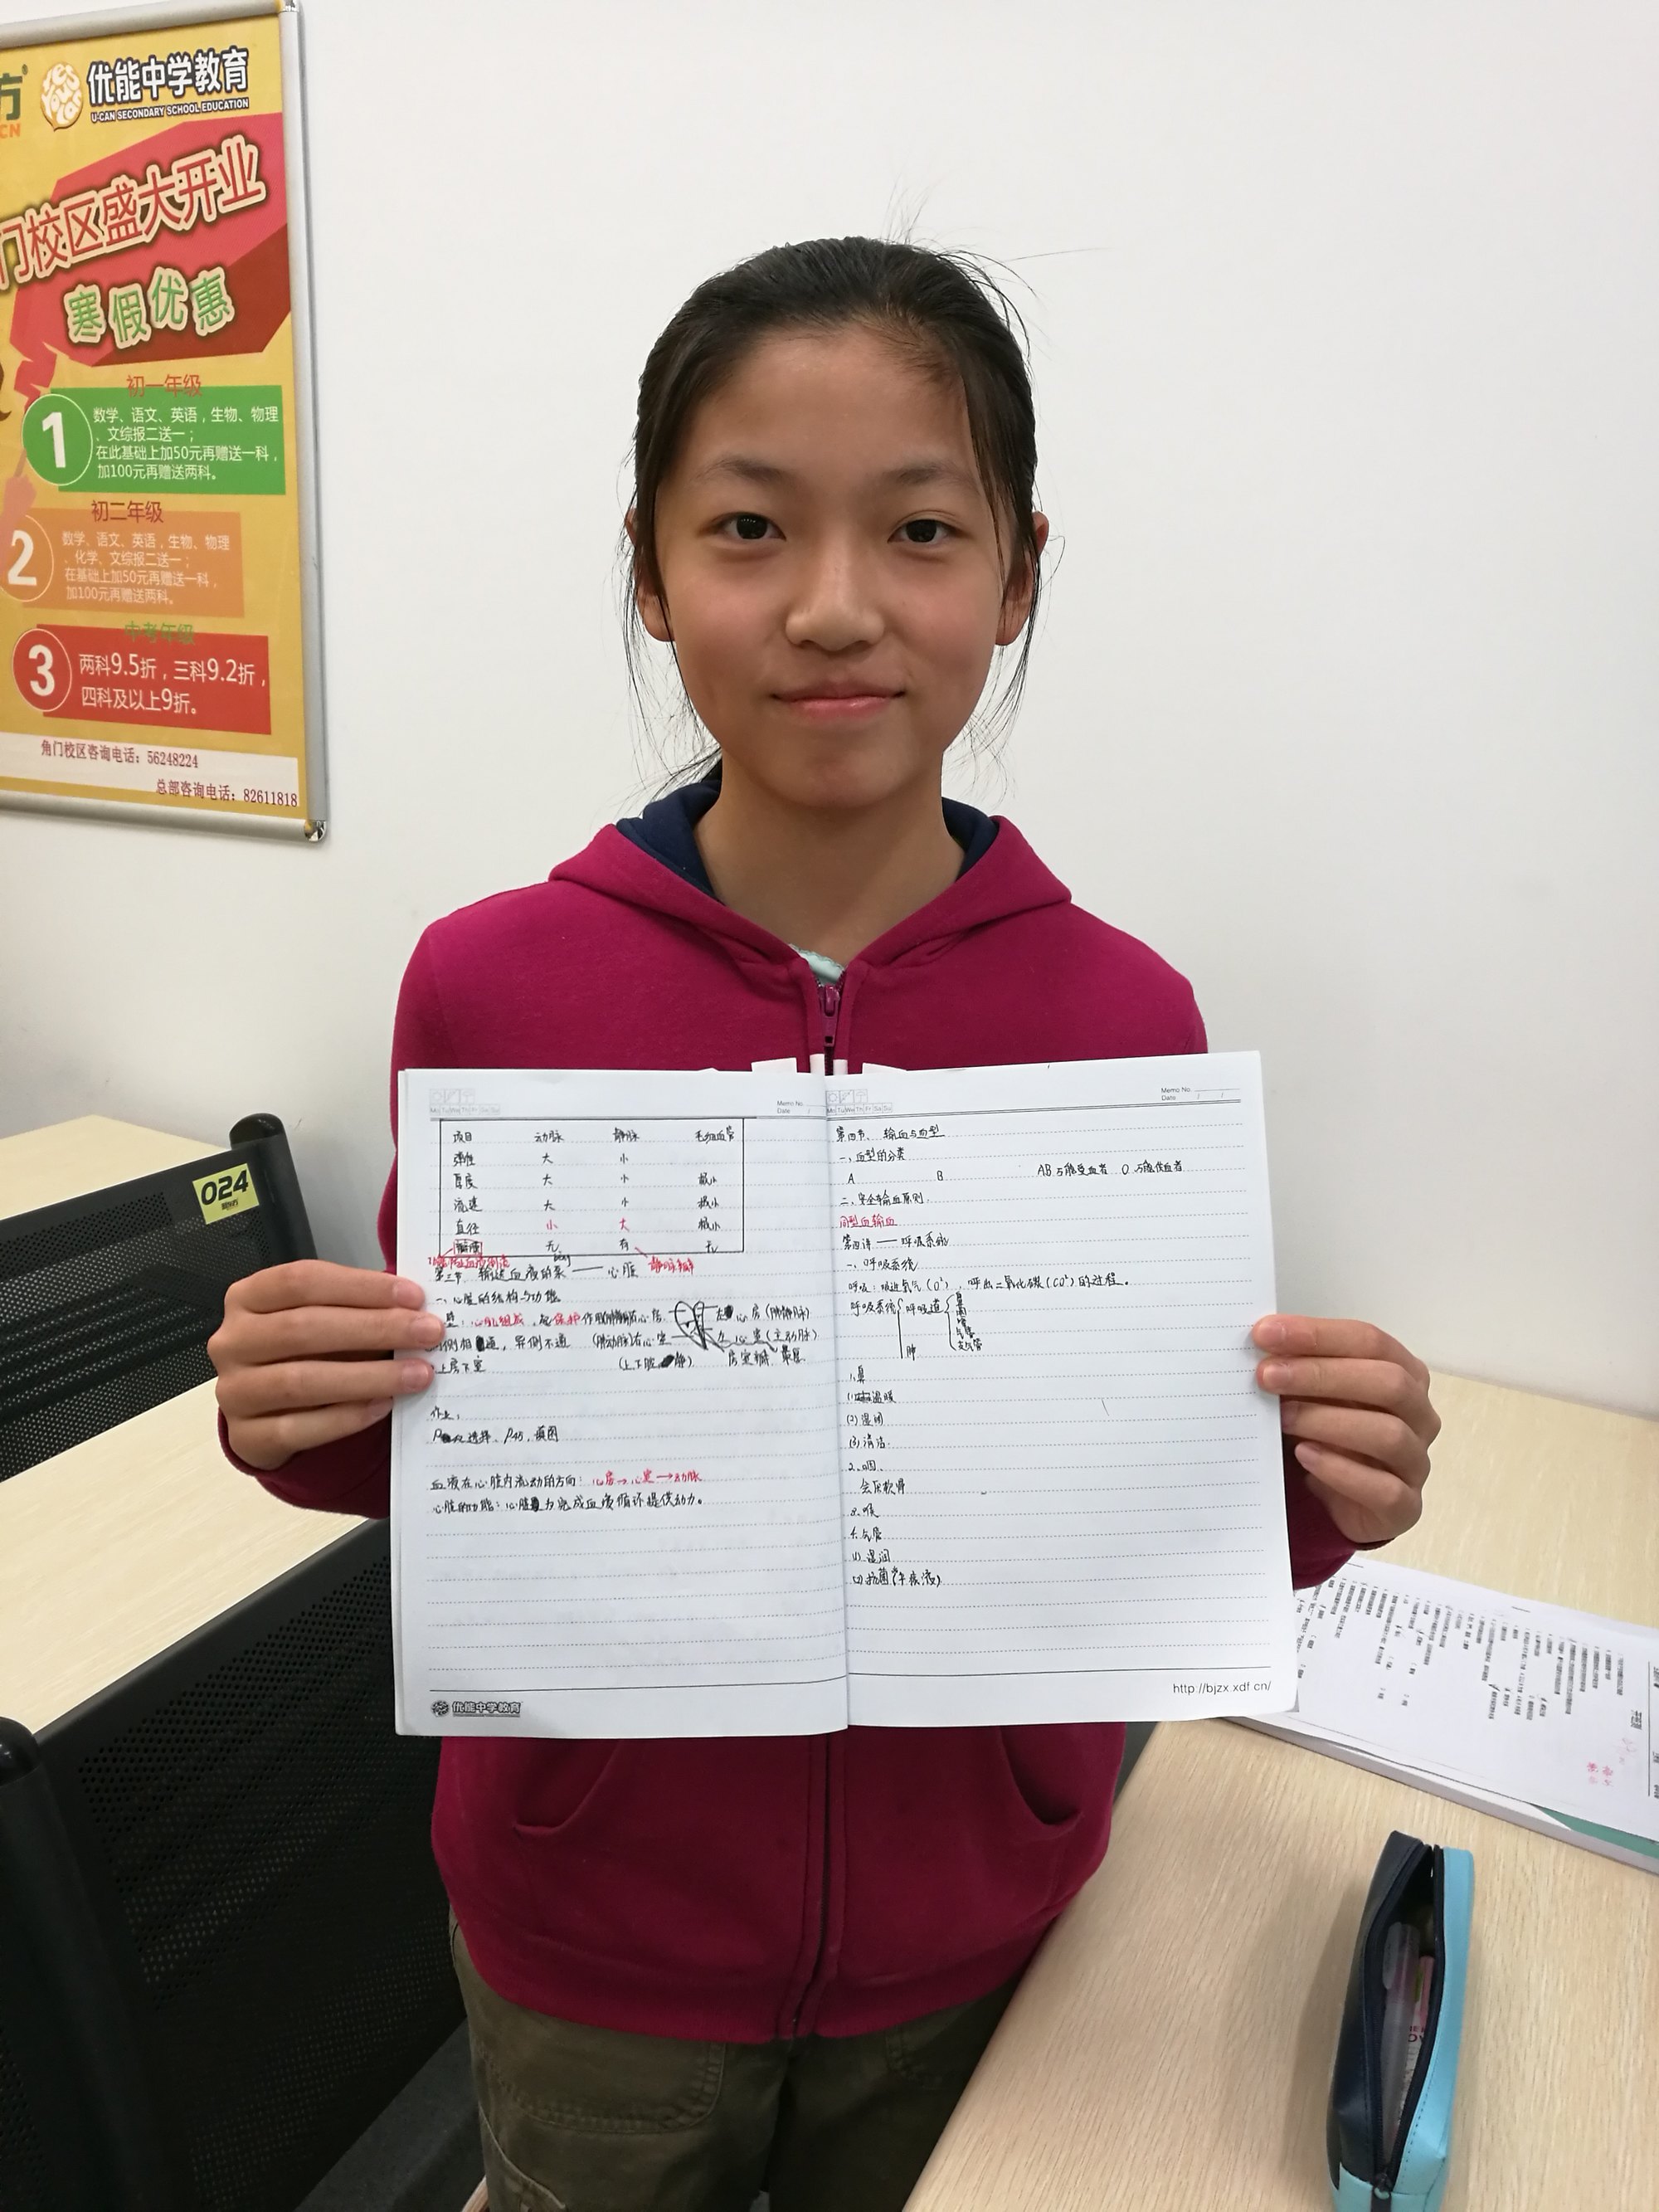 方
CN
优能中学教育
U-CAN SECONDARY SCHOOL EDUCATION
门校区盛大开业
寒假优惠
初一年级
1
数学、语文、英语，生物、物理
、文综报二送一；
在此基础上加50元再赠送一科，
加100元再赠送两科。
初二年级
2
数学、语文、英语，生物、物理
、化学、文综报二送一；
在基础上加50元再赠送一科，
加100元再赠送两科。
中考年级
3
两科9.5折，三科9.2折，
四科及以上9折。
角门校区咨询电话：56248224
总部咨询电话：82611818
024
Memo No.
Date / 
项目 动脉 静脉 毛细血管
弹性 大 小
厚度 大 小 极小
流速 大 小 极小
直径 小 大 极小
瓣膜 无 有 无
静脉瓣
输送血液的泵——心脏
一、心脏的结构与功能
心肌组成 保护作用 右心房 左心房(肺静脉)
侧相通，异侧不通 (肺动脉)右心室 左心室(主动脉)
上房下室 (上下腔静) 房室瓣 最厚
作业：
选择、P45、填图
血液在心脏内流动的方向：心房→心室→动脉
心脏的功能：心脏为完成血液循环提供动力。
优能中学教育
Memo No.
Date / /
第四节、输血与血型
一、血型的分类
A B AB万能受血者 O万能供血者
二、安全输血原则
同型血输血
第四讲——呼吸系统
一、呼吸系统
呼吸：吸进氧气(O²)，呼出二氧化碳(CO²)的过程。
呼吸系统 呼吸道 鼻
咽
喉
气管
支气管
肺
1.鼻
(1)温暖
(2)湿润
(3)清洁
2.咽
会厌软骨
3.喉
4.气管
(1)湿润
(2)抗菌
http://bjzx.xdf.cn/